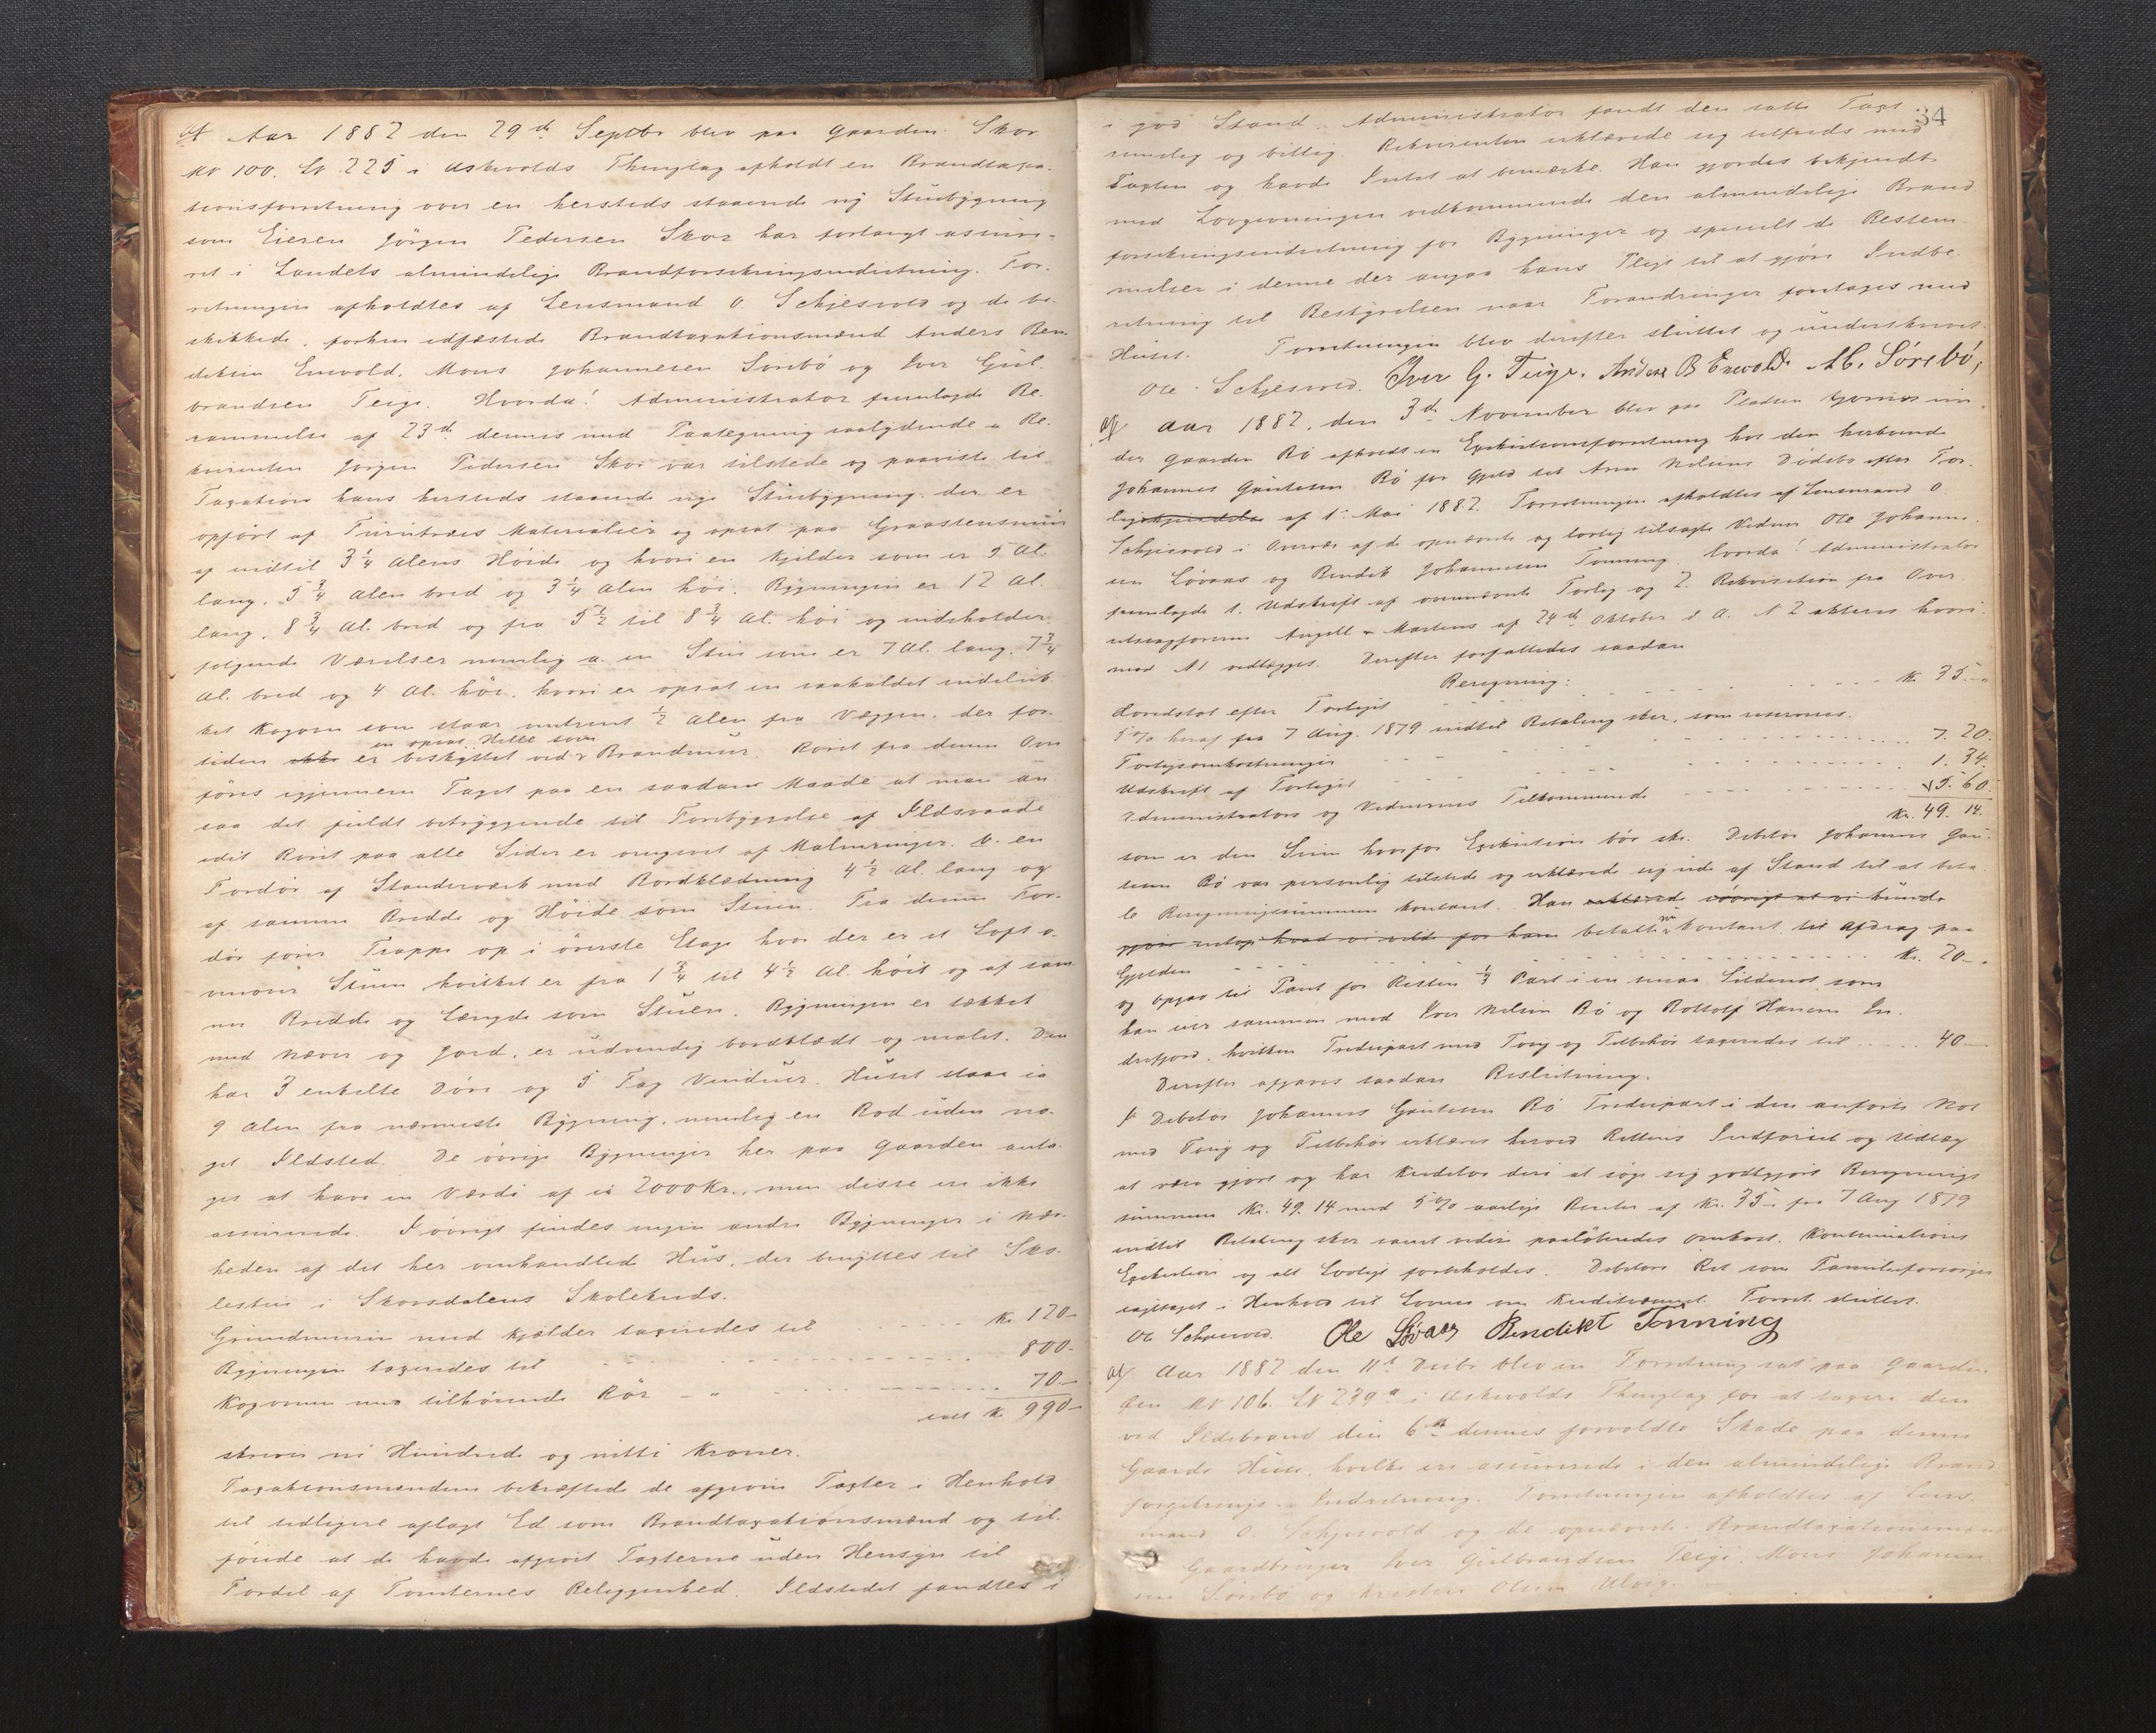 Aar 1882 den 29de Septbr blev paa Gaarden Skor
MN 100. LN 225 i Askevolds Thinglag afholdt en Brandtaxa-
tionsforretning over en hersteds staaende ny Stuebygning
som Eieren Jörgen Pedersen Skor har forlangt assure-
ret i Landets almindelige Brandforsikringsindretning. For-
retningen afholdtes af Lensmand O. Schjesvold og de be-
skikkede, forhen edfæstede Brandtaxationsmænd Anders Ben-
diksen Emvold, Mons Johannesen Sörebö og Iver Gul-
brandsen Teige. Hvorda! Administrator fremlagde Be-
rammelse af 23de dennes med Paategning saalydende. Re-
kvirenten Jörgen Pedersen Skor var tilstede og paaviste til
Taxation hans hersteds staaende nye Stuebygning, der er
opfört af Furutræes Materialier og opsat paa Graastensmuur
af indtil 3 1/4 Alens Höide og hvori en Kjelder som er 5 Al.
lang, 5 3/4 Alen bred og 3 1/4 Alen höi. Bygningen er 12 Al.
lang, 8 3/4 Al. bred og fra 5 1/2 til 8 3/4 Al. höi og indeholder
fölgende Værelser nemlig a. en Stue som er 7 Al. lang, 7 3/4
Al. bred og 4 Al. höi, hvori er opsat en saakaldet indeluk-
ket Kogovn som staar omtrent 1/2 Alen fra Væggen, der for-
en opsat Helle som
tiden er beskyttet ved Brandmuur. Röret fra denne Ovn
föres igjennem Taget paa en saadan Maade at man an-
saa det fuldt betryggende til Forebyggelse af Ildsvaade
idet Röret paa alle Sider er omgivet af Malmringer. b. en
Fordör af Standerværk med Bordklædning 4 1/2 Al. lang og
af samme Bredde og Höide som Stuen. Fra denne For-
dör förer Trappe op i överste Etage hvor der er et Loft o-
venover Stuen, hvilket er fra 1 3/4 til 4 1/2 Al. höit og af sam-
me Bredde og Længde som Stuen. Bygningen er tækket
med Næver og Jord, er udvendig bordklædt og malet. Den
har 3 enkelte Döre og 5 Fag Vinduer. Huset staar ca
9 Alen fra nærmeste Bygning, nemlig en Bod uden no-
get Ildsted. De övrige Bygninger her paa Gaarden anta-
ges at have en Værdi af ca 2000 Kr., men disse ere ikke
assurerede. Iövrigt findes ingen andre Bygninger i Nær-
heden af det her omhandlede Hus, der benyttes til Sko-
lestue i Skorsdalens Skolekreds.
Grundmuren med Kjælder taxeredes til Kr. 120-
Bygningen taxeredes til 800-
Kogovnen med tilhörende Rör - " 70-
ialt Kr. 990-
skriver ni Hundrede og nitti Kroner.
Taxationsmændene bekræftede de afgivne Taxter i Henhold
til tidligere aflagt Ed som Brandtaxationsmænd og til-
föiede at de havde afgivet Taxterne uden Hensyn til
Fordel af Tomternes Beliggenhed. Ildstedet fandtes i
34
i god Stand. Administrator fandt den satte Taxt
rimelig og billig. Rekvirenten erklærede sig tilfreds med
Taxten og havde Intet at bemærke. Han gjordes bekjendt
med Lovgivningen vedkommende den almindelige Brand-
forsikringsindretning for Bygninger og specielt de Bestem-
melser i denne der angaar hans Pligt til at gjöre Indbe-
retning til Bestyrelsen naar Forandringer foretages med
Huset. Forretningen blev derefter sluttet og underskrevet.
Ole Schjesvold. Iver G. Teige. Anders B Emvold. M. Sörebö,
Aar 1882, den 3de November blev paa Pladsen un-
der Gaarden Bö afholdt en Exekutionsforretning hos den herboende
Johannes Gautesen Bö for Gjeld til Arne Nilsens Dödsbo efter For-
lig af 1ste Mai 1882. Forretningen afholdtes af Lensmand O.
Schjesvold i Overvær af de opnævnte og lovlig tilsagte Vidner Ole Johanne-
sen Lövaas og Bendik Johannesen Tonning. hvorda! Administrator
fremlagde 1. Udskrift af ovennævnte Forlig og 2. Rekvisition fra Over-
retssagförerne Angell & Martens af 24de Oktober d. A. N 2 akteres hvori-
mod N 1 vedlægges. Derefter forfattedes saadan
Beregning:
Hovedstol efter Forliget Kr. 35.-
5% heraf fra 7 Aug. 1879 indtil Betaling sker, som reserveres.
Forligsomkostninger 7. 20.
Udskrift af Forliget 1. 34.
Administrators og Vidnernes Tilkommende 5. 60.
Kr. 49. 14.
som er den Sum hvorfor Exekution bör ske. Debitor Johannes Gau-
tesen Bö var personlig tilstede og erklærede sig ude af Stand til at beta-
le Beregningssummen kontant. Han erklærede iövrigt at vi kunde
gjöre Udlæg hvad vi vilde for ham betalte nu kontant til Afdrag paa
Gjelden Kr. 20-.
og opgav til Pant for Resten 1/3 Part i en smaa Sildenot som
han eier sammen med Iver Nilsen Bö og Rottolf Hansen In-
drefjord, hvilken Trediepart med Toug og Tilbehör taxeredes til 40.-
Derefter afgaves saadan Beslutning.
I Debitor Johannes Gautesen Bö Trediepart i den anförte Not
med Toug og Tilbehör erklæres herved Rettens Indförsel og Udlæg
at være gjort og har Kreditor deri at söge sig godtgjort Beregnings-
summen Kr. 49. 14 med 5% aarlige Renter af Kr. 35.- fra 7 Aug 1879
indtil Betaling sker samt videre paalöbendes Omkost. Kontinuations
Exekution og alt Lovligt forbeholdes. Debitors Ret som Familieforsörger
iagttaget i Henhold til Loven om Kreditvæsenet. Forret. sluttet.
Ole Schjesvold. Ole Lövaas Bendikt Tonning
Aar 1882 den 11te Decbr blev en Forretning sat paa Gaarden
MN 106. LN 239a i Askevolds Thinglag for at taxere den
ved Ildebrand den 6te dennes forvoldte Skade paa denne
Gaards Huse, hvilke ere assurerede i den almindelige Brand-
forsikrings-Indretning. Forretningen afholdtes af Lens-
mand O. Schjesvold og de opnævnte Brandtaxationsmænd
Gaardbruger Iver Gulbrandsen Teige Mons Johanne-
sen Sörebö og Kristen Olsen